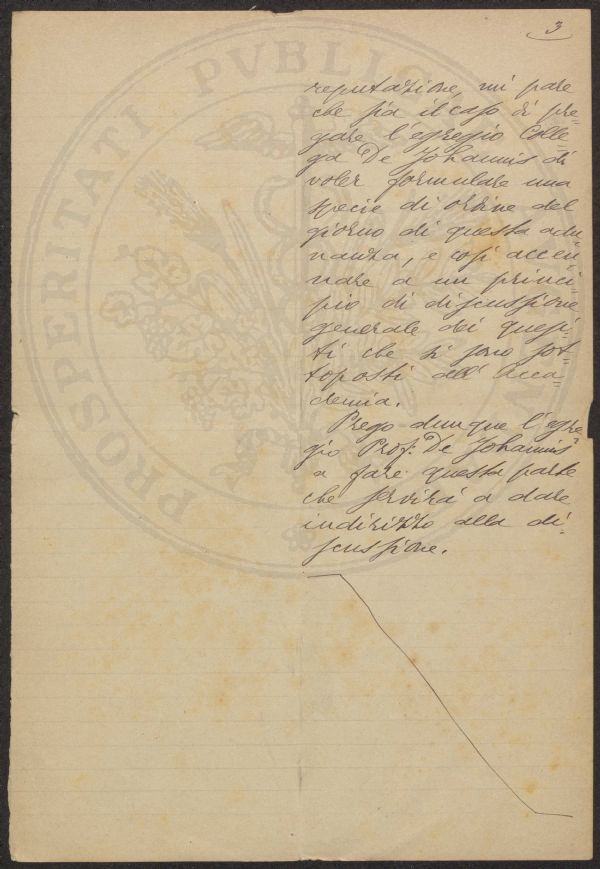 3
reputazione, mi pare
che sia il caso di pre=
gare l'egregio Colle=
ga De Johannis di
voler formulare una
specie di ordine del
giorno di questa adu=
nanza, e così accen=
nare a un princi=
pio di discussione
generale dei quesi=
ti che si sono sot=
toposti all' Acca=
demia.
Prego dunque l'egre
gio Prof. De Johannis
a fare questa parte
che servirà a dare
indirizzo alla di=
scussione.
PROSPERITATI PVBLICAE